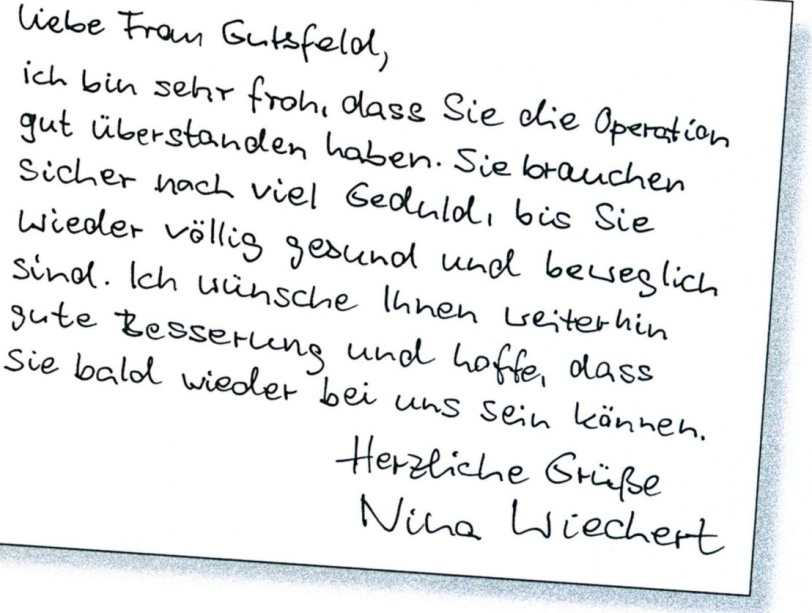 Liebe Frau Gutsfeld,
ich bin sehr froh, dass Sie die Operation
gut überstanden haben. Sie brauchen
sicher noch viel Geduld, bis Sie
wieder völlig gesund und beweglich
sind. Ich wünsche Ihnen weiterhin
gute Besserung und hoffe, dass
Sie bald wieder bei uns sein können.
Herzliche Grüße
Nina Wiechert